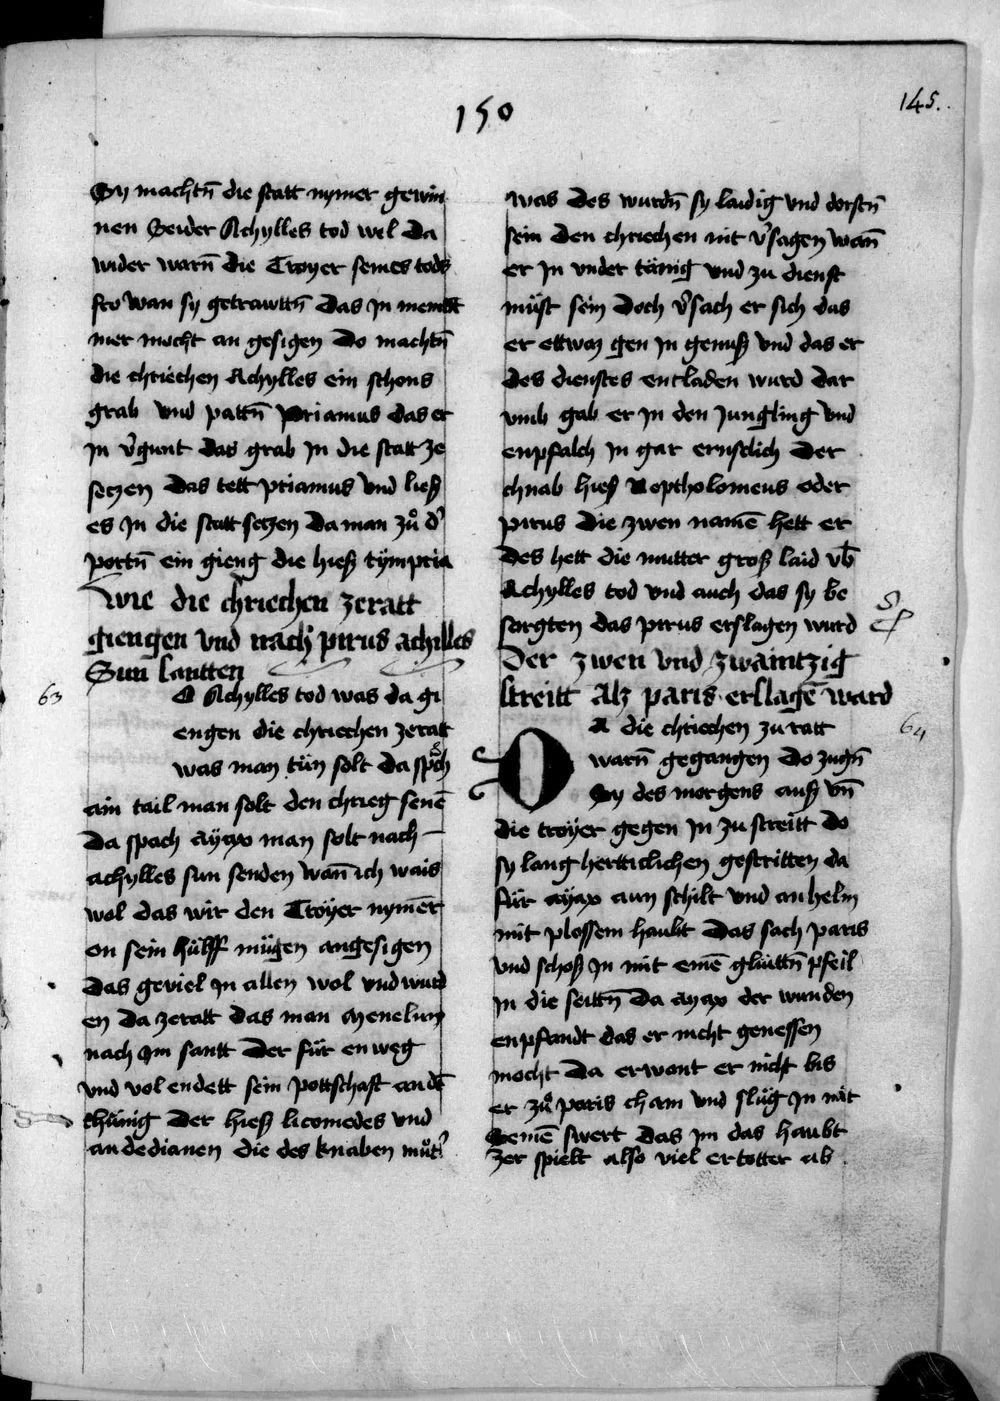 150
145.
Sy machtn̄ die statt nymer gewin
nen Seider Achylles tod wel da
wider warn̄ die Troyer seines tods
fro wan sy getrawttn̄ das in niemāt
mer mocht an gesigen Do machtn̄
die chriechen Achylles ein schons
grab vnd pattn̄ priamus das er
in v̓gunt das grab in die statt ze
seczen das tett priamus vnd ließ
es in die statt seczen da man zů d̓
portn̄ ein gieng die hieß tympria
Wie die chriechen zeratt
giengen vnd nach pirus achilles
Sun santten
63
O Achylles tod was da gi
engen die chriechen zeratt
was man tün solt da sprach
ain tail man solt den chrieg senē
da spach ayax man solt nach
achylles sun senden wan̄ ich wais
wol das wir den Troyer nymēr
on sein hülff mügen angesigen
das geviel in allen wol vnd wurd
en da zeratt das man Menelum
nach im santt der für enweg
vnd vol endett sein pottschaft an dē
chünig der hieß licomedes vnd
an dedianen die des knaben můt̓
was des wurdn̄ sy laidig vnd dorstn̄
sein den chriechen nit v̓sagen wan̄
er in vnder tänig vnd zu dienst
müst sein doch v̓sach er sich das
er ettwaz gen in genuß vnd das er
des dienstes entladen wurd dar
vmb gab er in den jungling vnd
enpfalch in gar ernstlich der
chnab hieß Noptholomeus oder
pirus die zwen namē hett er
des hett die mutter groß laid vb̄
Achylles tod vnd auch das sy be
sorgten das pirus erslagen wurd
Der zwen vnd zwaintzig
streitt Alz paris erslagē ward
64
DA die chriechen zu ratt
warn̄ gegangen do zugn̄
Sy des morgens auß vn̄
die troyer gegen in zu streitt do
sy lang hertticlichen gestritten da
für ayax aun schilt vnd an helm
mit plossem haubt das sach paris
vnd schoß in mit einē glüttn̄ pfeil
in die seittn̄ da ayax der wunden
enpfandt das er nicht genessen
mocht da erwant er nicht bis
er zů paris cham vnd slüg in mit
Seinē swert das im das haubt
zer spielt also viel er totter ab